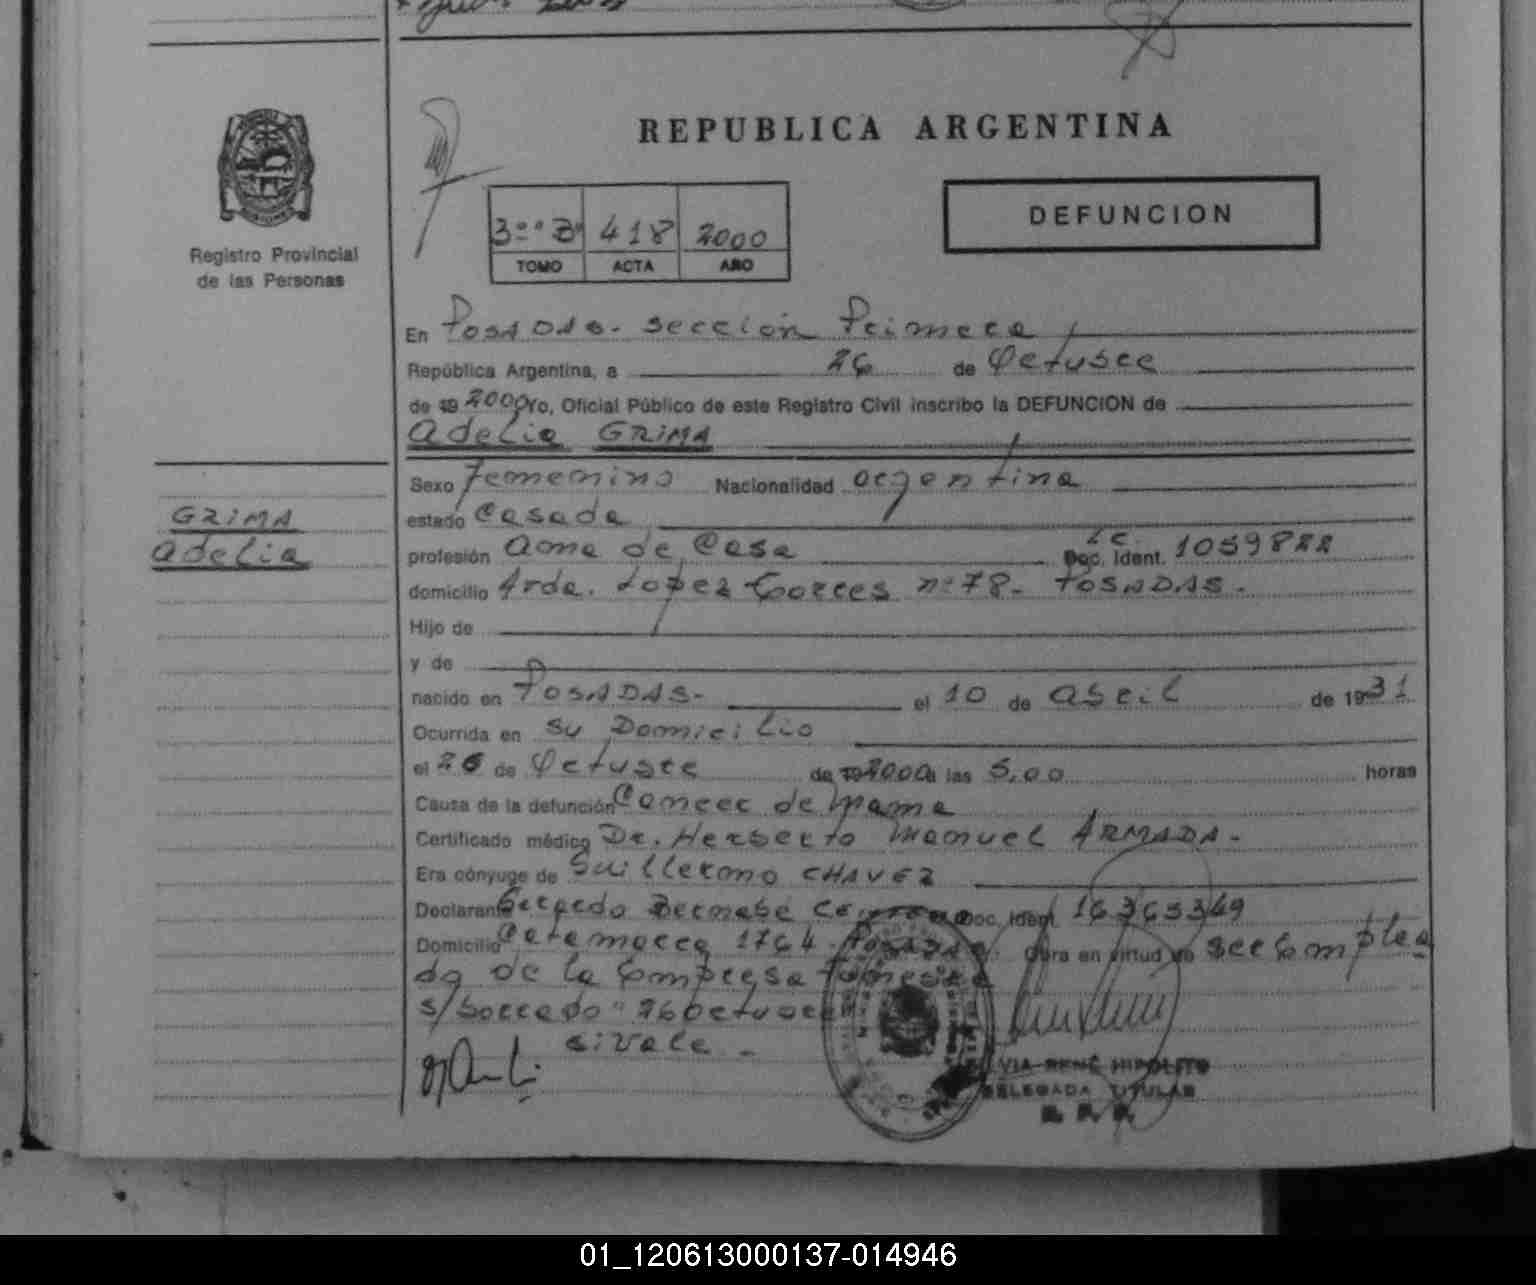 REPUBLICA ARGENTINA
Registro Provincial
de las Personas
3º "B" 418 2000
TOMO ACTA AÑO
DEFUNCION
En Posadas - Sección Primera
República Argentina, a 26 de Octubre
de 19 2000 Yo, Oficial Público de este Registro Civil inscribo la DEFUNCION de
Adelia GRIMA
Sexo Femenino Nacionalidad argentina
GRIMA
Adelia
estado Casada
profesión Ama de Casa L.C. Doc. Ident. 1059822
domicilio Avda. Lopez Torres nº 78 - POSADAS -
Hijo de
y de
nacido en POSADAS - el 10 de abril de 1931
Ocurrida en su Domicilio
el 26 de Octubre de 19 2000 a las 5,00 horas
Causa de la defunción Cancer de Mama
Certificado médico Dr. Herberto Manuel ARMADA -
Era cónyuge de Guillermo CHAVEZ
Declarante Bernabé Doc. Ident. 16363349
Domicilio Catamarca 1764 - Posadas Obra en virtud de ser emplea
do de la Empresa
s/borrado "26 Octubre
si vale -
VIA RENÉ HIPOLITO
DELEGADA TITULAR
R. P. P.
01_120613000137-014946